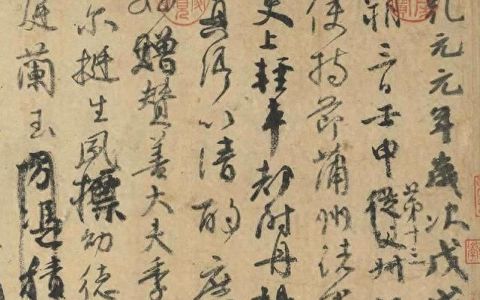 乾元元年歲次戊
朔三日壬申第十三從父叔
使持節蒲州諸
史上輕車都尉丹楊
真卿以清酌庶
姪贈贊善大夫季
爾挺生夙標幼德
庭蘭玉方憑積